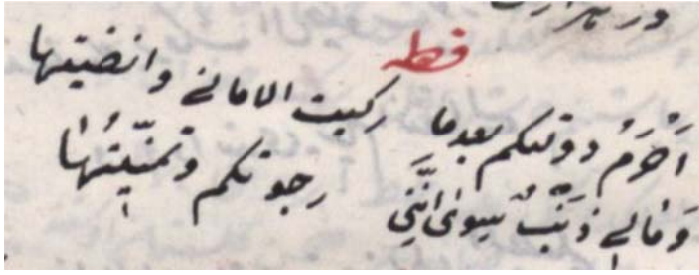 در
قطعه
اَحْرَمُ دولتكم بعدما ركبت الامانے وانضيتها
وَمالے ذَنْبٌ سوى اَنَّنِى رجوتكم وتمنّيتُها